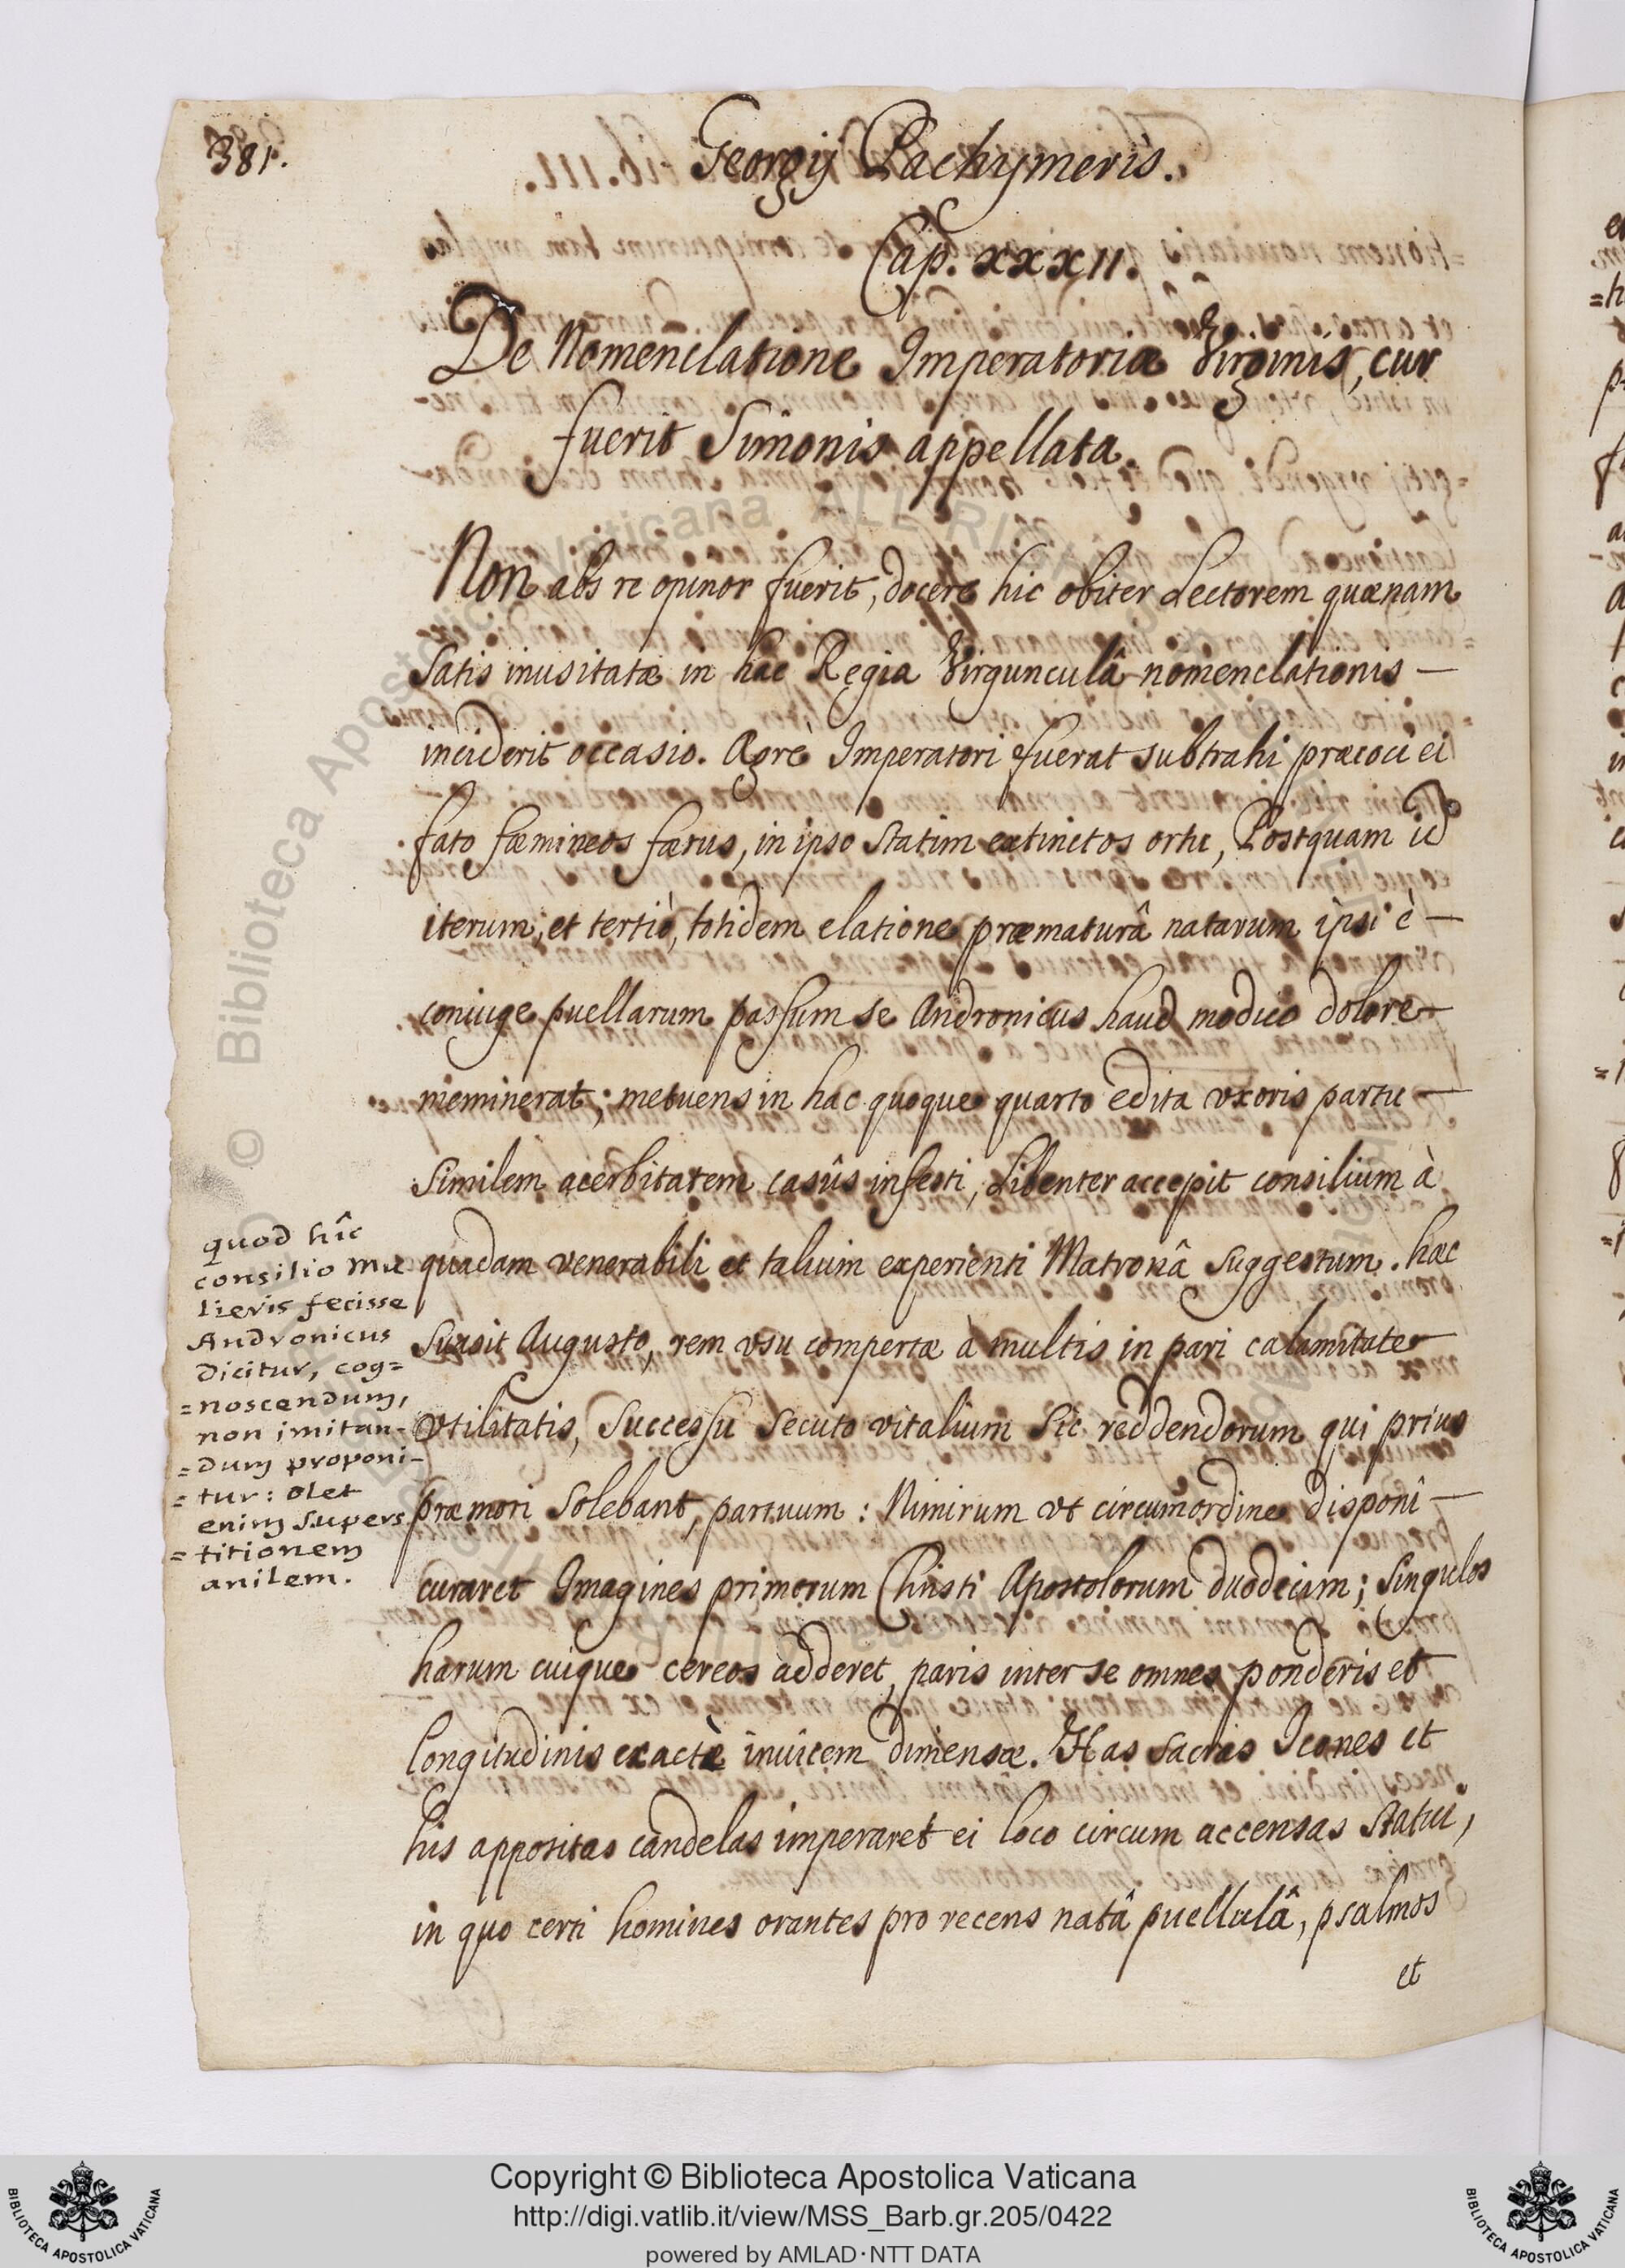 381.
Georgij Pachymeris.
Cap. XXXII.
De Nomenclatione Imperatoriæ Virginis, cur
fuerit Simonis appellata.
Non abs re opinor fuerit, docere hic obiter Lectorem quænam
satis inusitatæ in hac Regia Virgunculâ nomenclationis —
inciderit occasio. Ægrè Imperatori fuerat subtrahi præcoci ei
fato fæmineos fætus, in ipso statim extinctos ortu, Postquam id
iterum, et tertiò, totidem elatione præmaturâ natarum ipsi è —
coniuge puellarum passum se Andronicus haud modico dolore
meminerat; metuens in hac quoque quarto edita vxoris partu —
similem acerbitatem casûs infesti, Libenter accepit consilium à
quadam venerabili et talium experienti Matronâ suggestum. hæc
suasit Augusto, rem vsu compertæ à multis in pari calamitate
vtilitatis, successu secuto vitalium sic reddendorum qui prius
præmori solebant, partuum: Nimirum vt circumordine disponi —
curaret Imagines primorum Christi Apostolorum duodecim; singulos
harum cuique cereos adderet, paris inter se omnes ponderis et
longitudinis exactè inuicem dimensæ. Has sacras Icones et
his appositas candelas imperaret ei loco circum accensas statui,
in quo certi homines orantes pro recens natâ puellulâ, psalmos
et
quod hîc
consilio mu
lieris fecisse
Andronicus
dicitur, cog=
=noscendum,
non imitan-
=dum proponi-
=tur: olet
enim supers
=titionem
anilem.
© Biblioteca Apostolica Vaticana
Copyright © Biblioteca Apostolica Vaticana
http://digi.vatlib.it/view/MSS_Barb.gr.205/0422
powered by AMLAD·NTT DATA
BIBLIOTECA APOSTOLICA VATICANA
BIBLIOTECA APOSTOLICA VATICANA